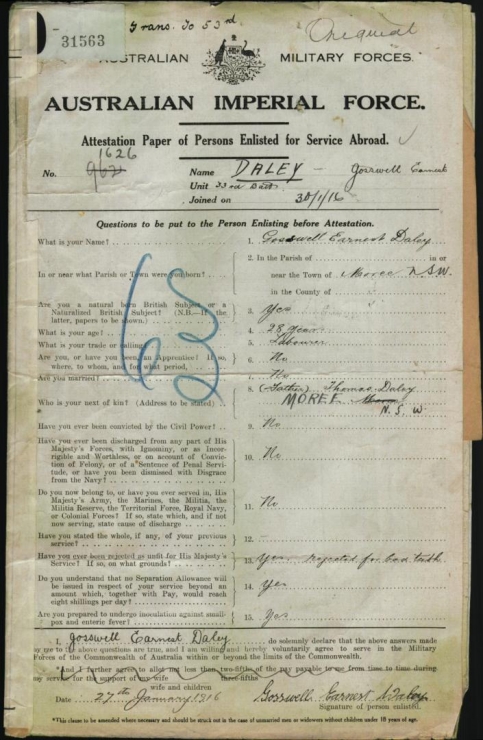 31563
Trans. To 53rd
Original
AUSTRALIAN MILITARY FORCES.
AUSTRALIAN IMPERIAL FORCE.
Attestation Paper of Persons Enlisted for Service Abroad.
1626
No. 962
Name DALEY — Gosswell Earnest
Unit 33rd Batt.
Joined on 30/1/16
Questions to be put to the Person Enlisting before Attestation.
What is your Name? 1. Gosswell Earnest Daley
In or near what Parish or Town were you born? 2. In the Parish of in or
near the Town of Moree N.S.W.
in the County of
Are you a natural born British Subject or a
Naturalized British Subject? (N.B.—If the
latter, papers to be shown.) 3. Yes
What is your age? 4. 28 years
What is your trade or calling? 5. Labourer
Are you, or have you been, an Apprentice? If so,
where, to whom, and for what period, 6. No
Are you married? 7. No
Who is your next of kin? (Address to be stated) 8. (Father) Thomas Daley
MOREE
N. S. W
Have you ever been convicted by the Civil Power? 9. No
Have you ever been discharged from any part of His
Majesty's Forces, with Ignominy, or as Incor-
rigible and Worthless, or on account of Convic-
tion of Felony, or of a Sentence of Penal Servi-
tude, or have you been dismissed with Disgrace
from the Navy? 10. No
Do you now belong to, or have you ever served in, His
Majesty's Army, the Marines, the Militia, the
Militia Reserve, the Territorial Force, Royal Navy,
or Colonial Forces? If so, state which, and if not
now serving, state cause of discharge 11. No
Have you stated the whole, if any, of your previous
service? 12. —
Have you ever been rejected as unfit for His Majesty's
Service? If so, on what grounds? 13. Yes, rejected for bad teeth
Do you understand that no Separation Allowance will
be issued in respect of your service beyond an
amount which, together with Pay, would reach
eight shillings per day? 14. Yes
Are you prepared to undergo inoculation against small-
pox and enteric fever? 15. Yes
I, Gosswell Earnest Daley do solemnly declare that the above answers made
by me to the above questions are true, and I am willing and hereby voluntarily agree to serve in the Military
Forces of the Commonwealth of Australia within or beyond the limits of the Commonwealth.
*And I further agree to allot not less than two-fifths of the pay payable to me from time to time during
three-fifths
my service for the support of my wife
wife and children
Date 27th January 1916 Gosswell Earnest Daley
Signature of person enlisted.
*This clause to be amended where necessary and should be struck out in the case of unmarried men or widowers without children under 18 years of age.